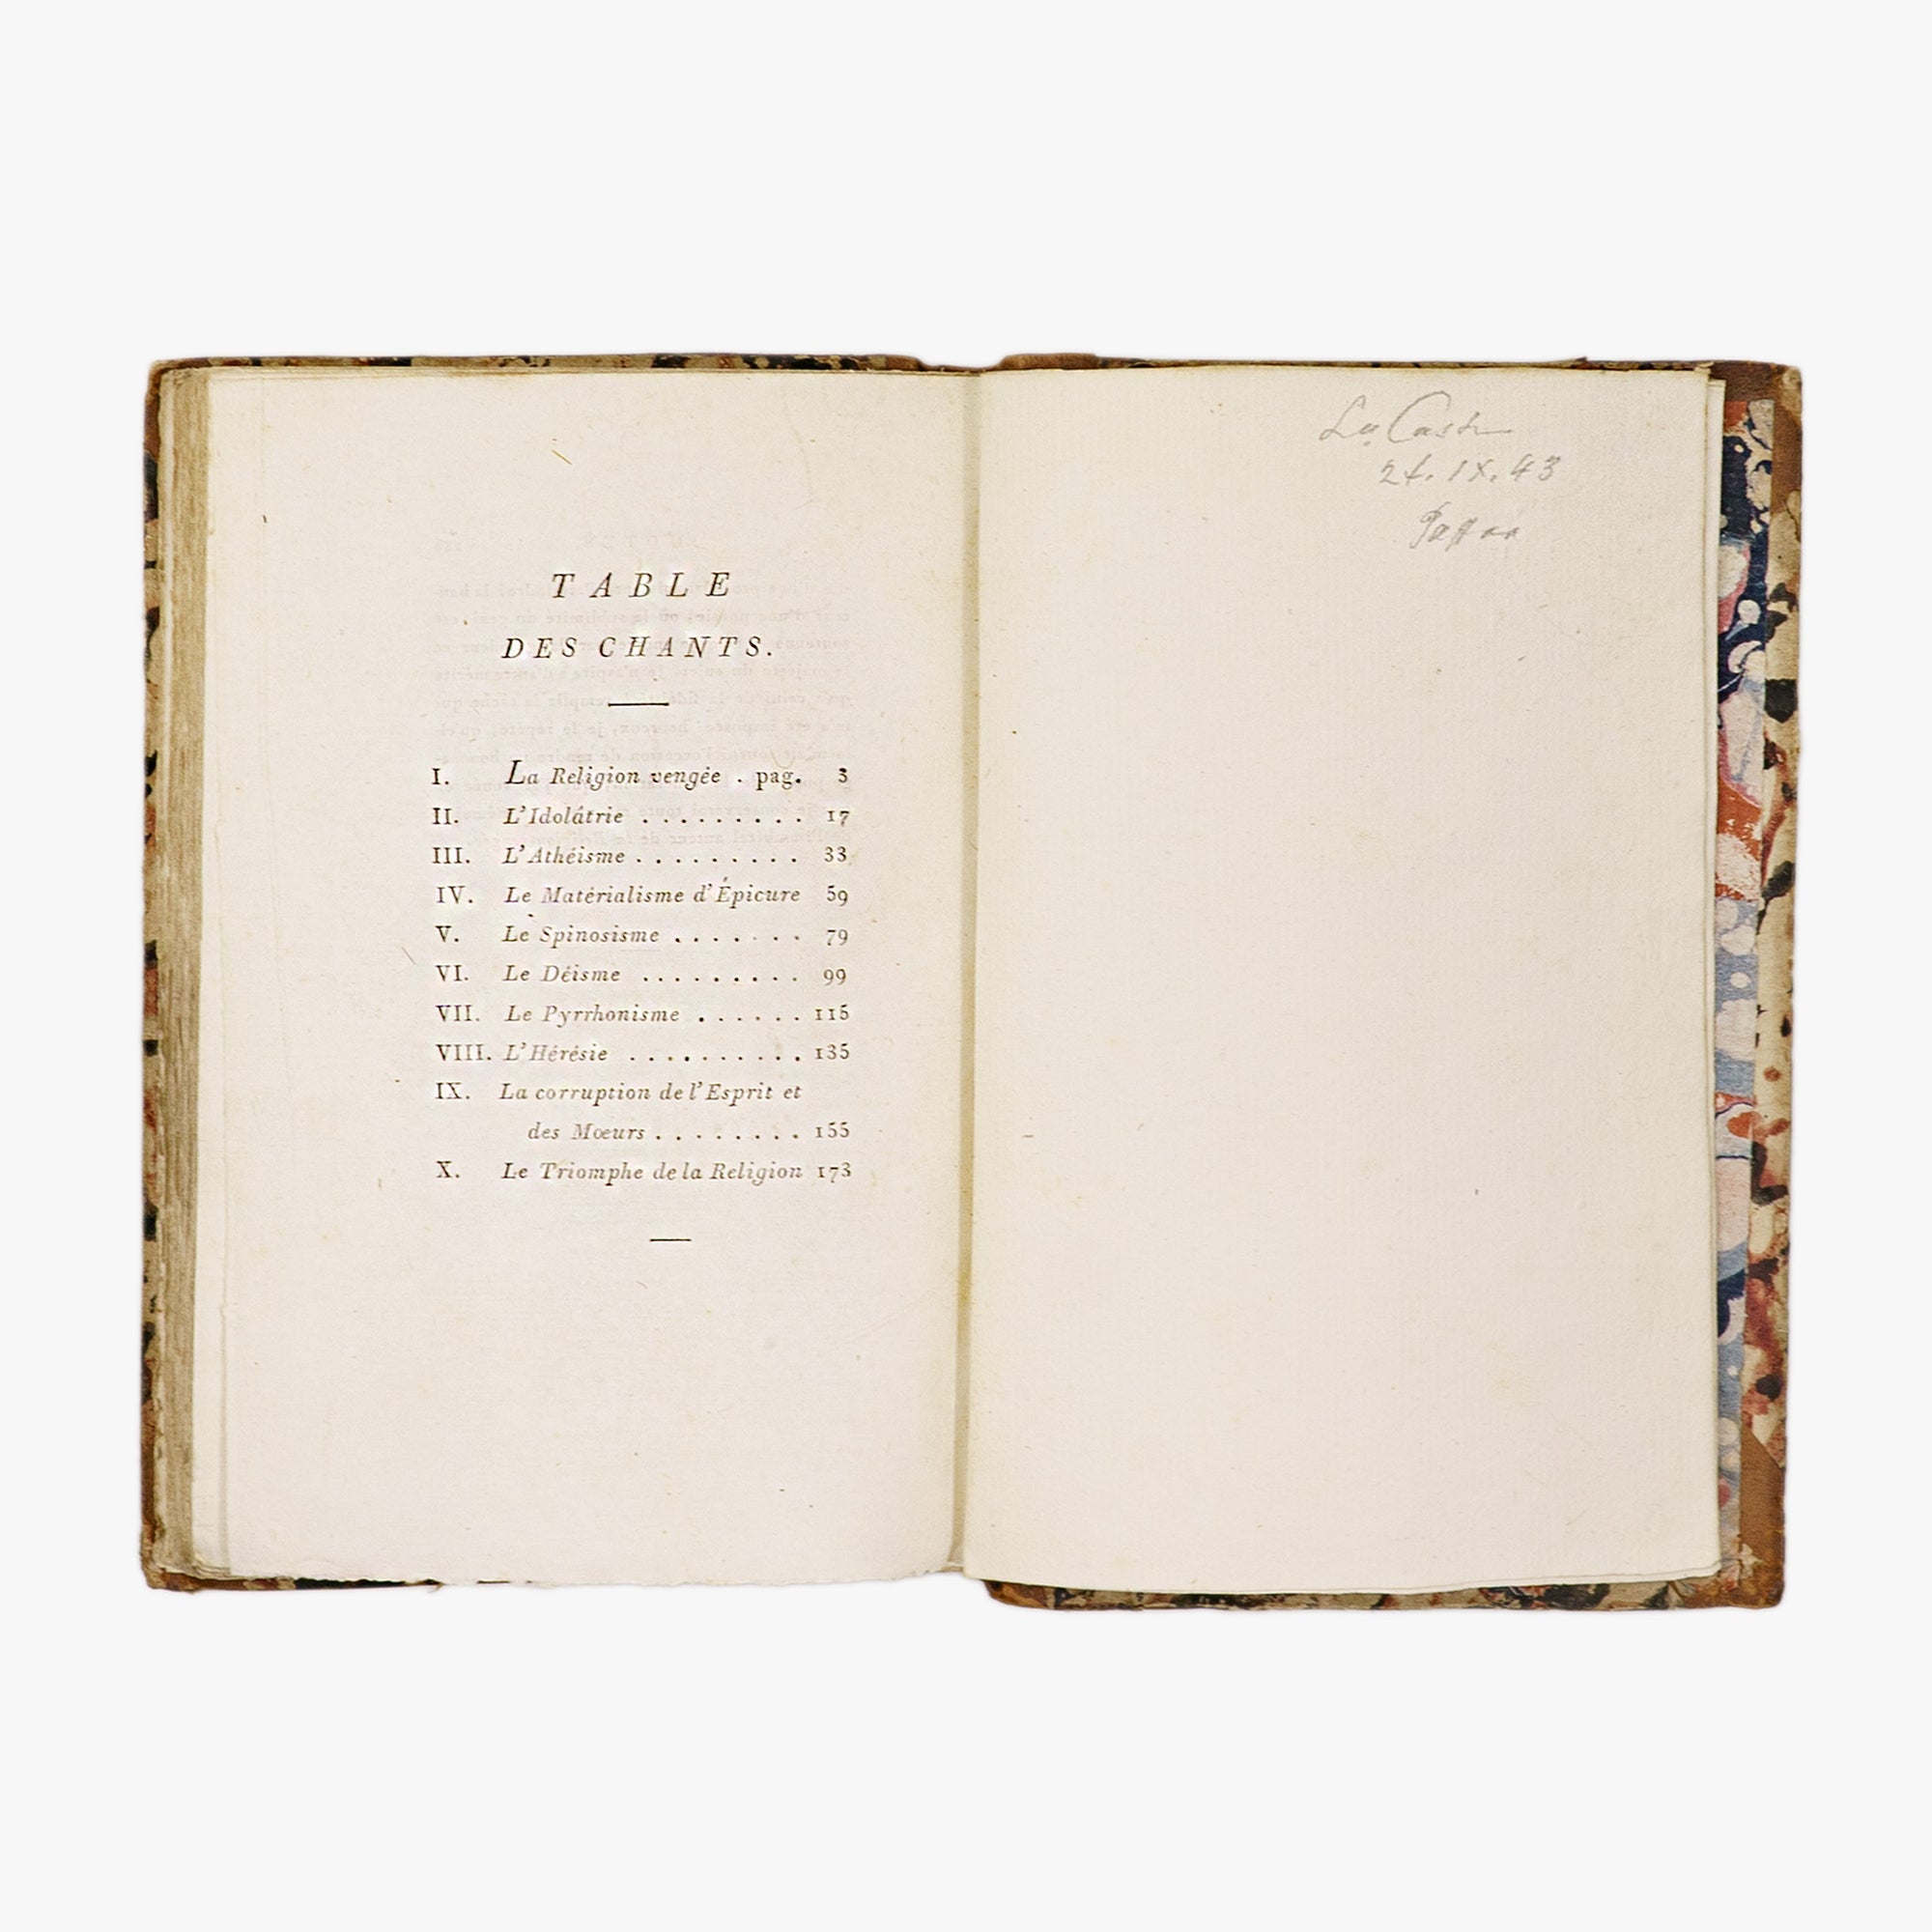 TABLE
DES CHANTS.
I. La Religion vengée . pag. 3
II. L'Idolâtrie . . . . . . . . . 17
III. L'Athéisme . . . . . . . . . 33
IV. Le Matérialisme d'Épicure 59
V. Le Spinosisme . . . . . . . 79
VI. Le Déisme . . . . . . . . . 99
VII. Le Pyrrhonisme . . . . . . 115
VIII. L'Hérésie . . . . . . . . . . 135
IX. La corruption de l'Esprit et
des Mœurs . . . . . . . . 155
X. Le Triomphe de la Religion 173